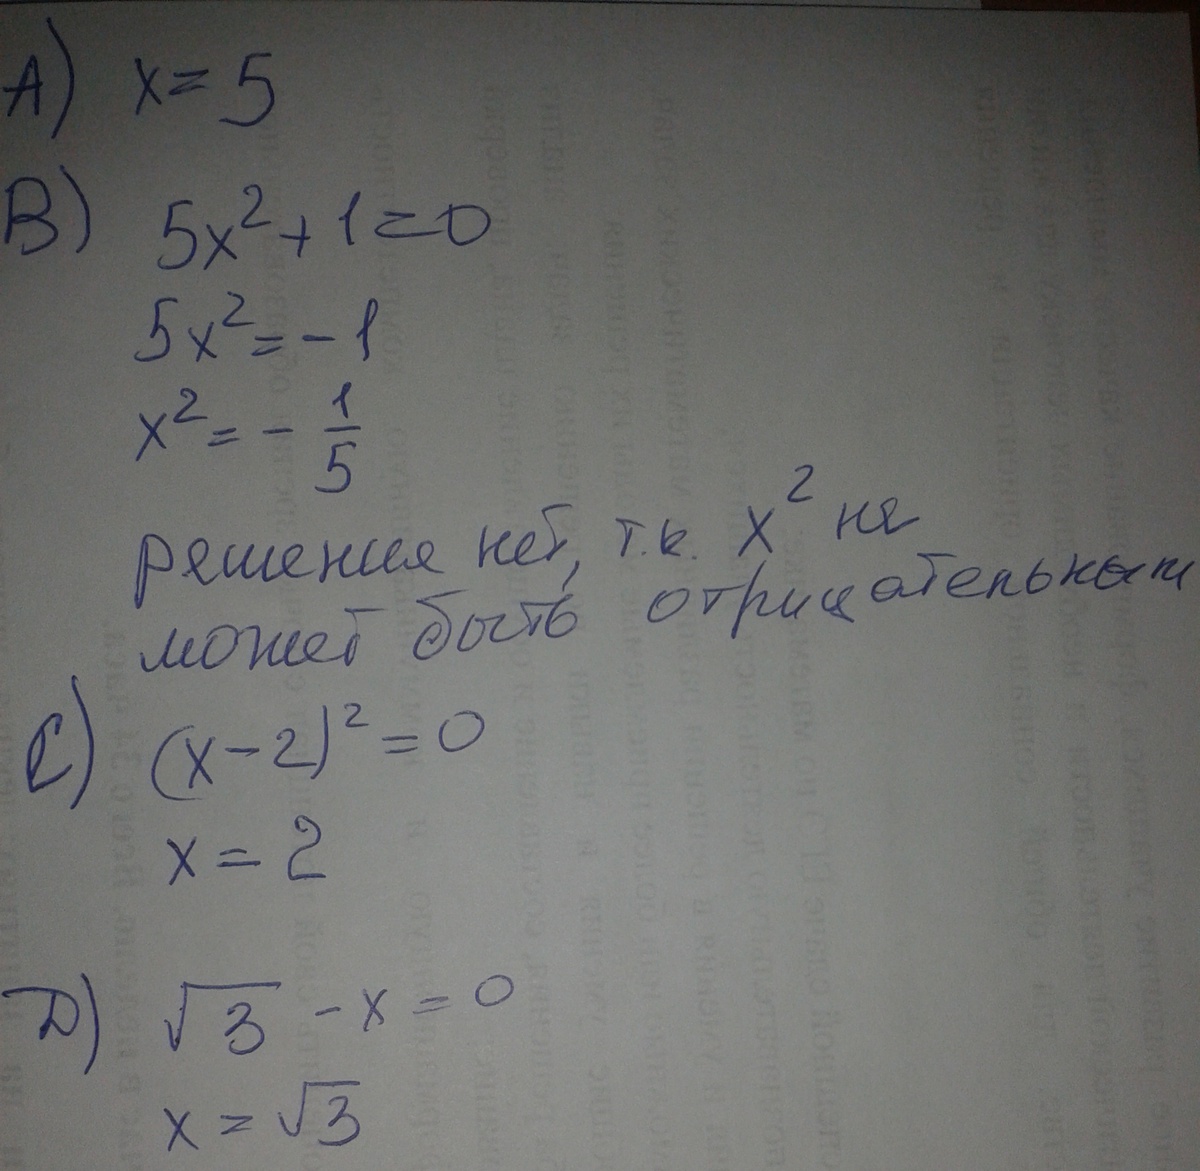 A) x = 5
B) 5x² + 1 = 0
5x² = - 1
x² = - 1/5
решения нет, т.к. x² не
может быть отрицательным
C) (x - 2)² = 0
x = 2
D) √3 - x = 0
x = √3